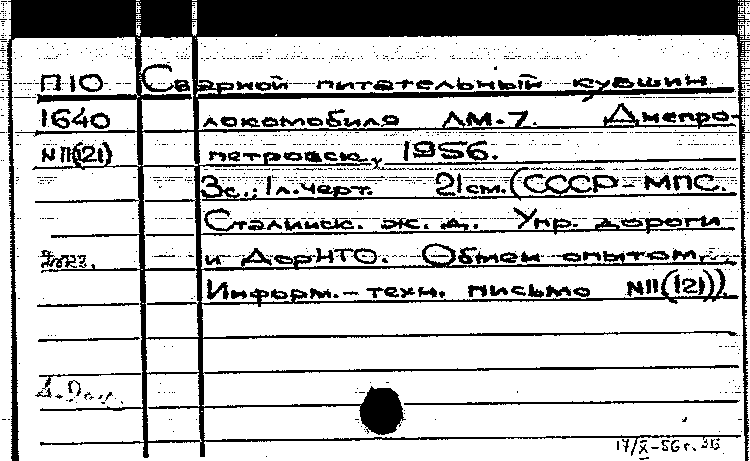 П10 Сварной питательный кувшин
1640 локомобиля ЛМ-7. Днепро-
N11(121) петровск, 1956.
3с.; 1л.черт. 21см. (СССР-МПС.
Сталинск. ж. д. Упр. дороги
и ДорНТО. Обмен опытом.
Информ.-техн. письмо N11(121))
17/X-56г.